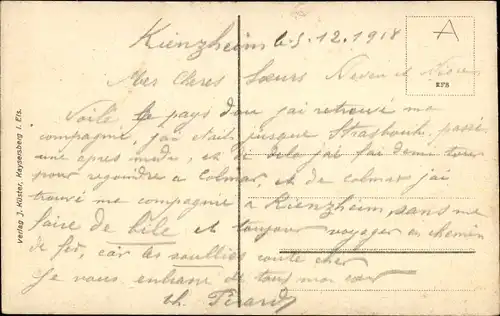 Kienzheim le 5.12.1918
A
Mes Cheres Soeurs Neveu et Nièces
Voilà le pays d'ou j'ai retrouvé ma
compagnie, j'ai etait jusque Strasbourg, passé
une apres midi, et de la j'ai fai demi tour
pour rejoindre a Colmar, et de colmar j'ai
trouvé ma compagnie a Kienzheim, sans me
faire de bile et toujour voyager en chemin
de fer, car les soulliés coute cher
Je vous embrasse de tout mon cœur
Ch. Pirard
Verlag J. Küster, Kaysersberg i. Els.